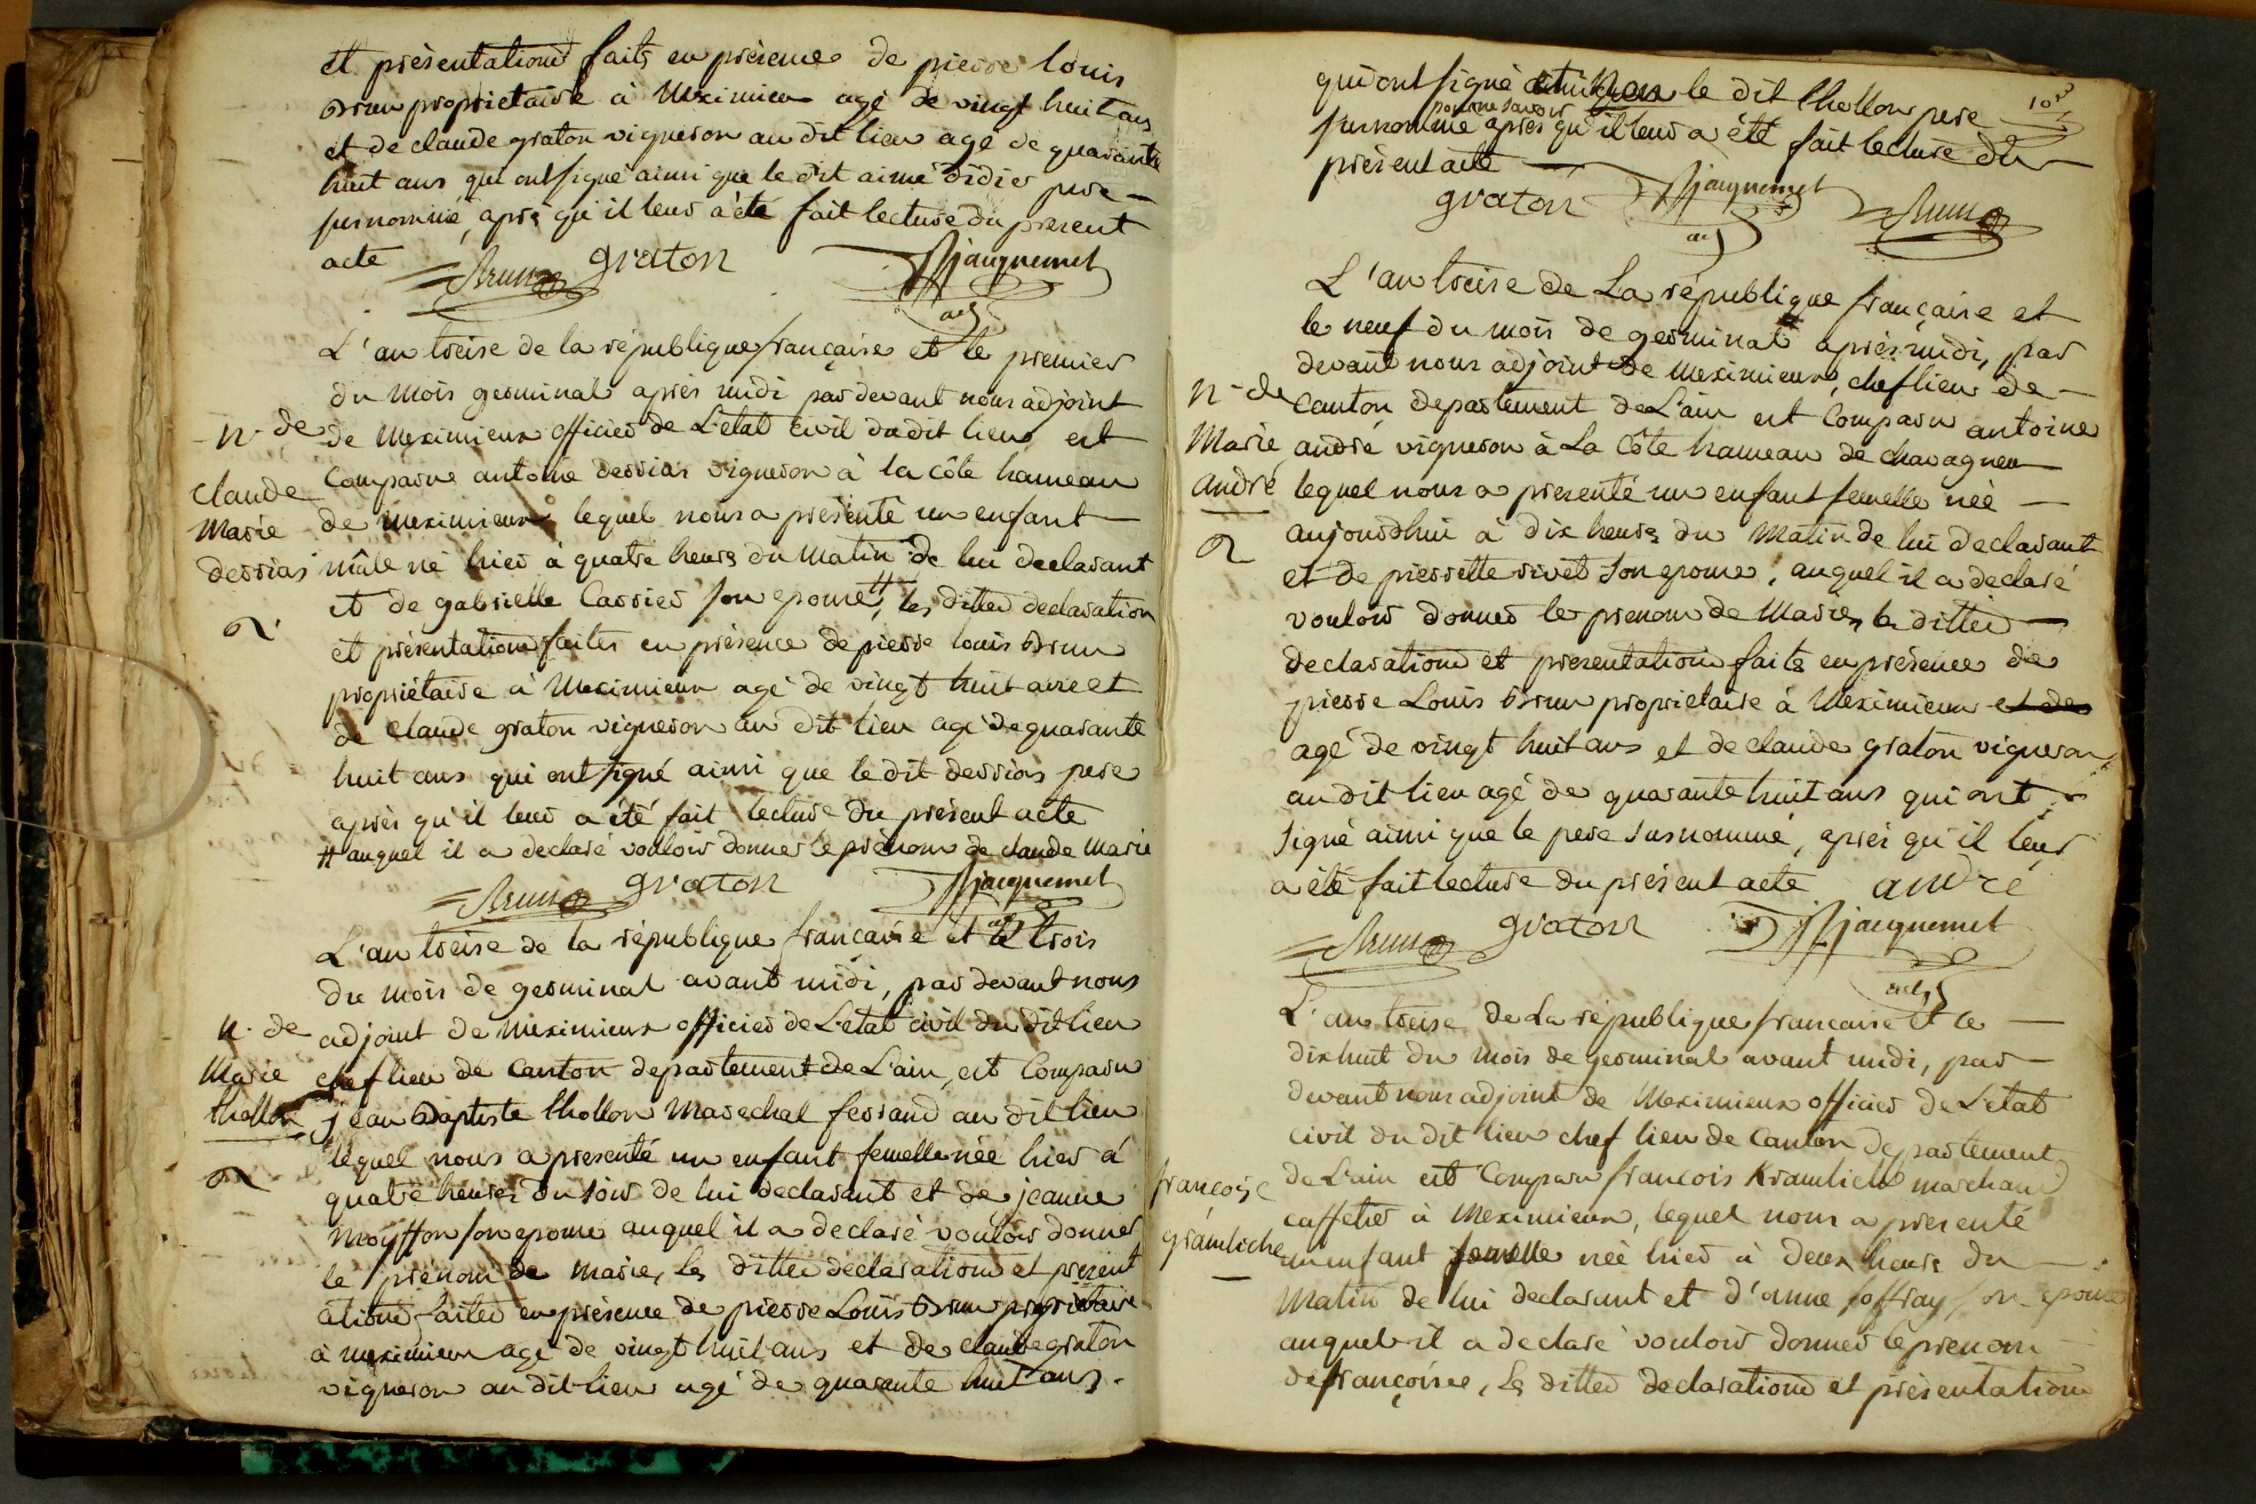 et présentationd faits en présence de pierre louis
Brun proprietaire à Meximieux agé de vingt huit ans
et de claude graton vigneron au dit lieu agé de quarante
huit ans, qui ont signé ainsi que le dit aimé didier pere
susnommé, après qu'il leur a été fait lecture du present
acte
Brun graton jacquemet
adj
L'an treise de la république française et le premier
du mois germinal après midi par devant nous adjoint
de Meximieux officier de L'etat civil du dit lieu est
Comparue antoine derrias vigneron à la côte hameau
de Meximieux lequel nous a présenté un enfant
mâle né hier à quatre heures du matin de lui declarant
et de gabrielle Carrier son epouse #, les dittes declaration
et présentationd faites en présence de pierre louis Brun
propriétaire à Meximieux agé de vingt huit ans et
de claude graton vigneron au dit lieu agé de quarante
huit ans qui ont signé ainsi que le dit derrias pere
après qu'il leur a été fait lecture du présent acte
# auquel il a declaré vouloir donner le prénom de claude Marie
Brun graton jacquemet
adj
n. de
claude
Marie
derrias
L'an treise de la république française et le trois
du mois de germinal avant midi, par devant nous
adjoint de Meximieux officier de L'etat civil du dit lieu
chef lieu de Canton departement de L'ain, est Comparu
jean Baptiste thollon Marechal ferrand au dit lieu
lequel nous a presenté un enfant femelle née hier à
quatre heures du soir de lui declarant et de jeanne
Moyffon son epouse auquel il a declaré vouloir donner
le prénom de Marie, les dittes déclarationd et present
ationd faites en présence de pierre Louis Brun proprietaire
à meximieux agé de vingt huit ans et de claude graton
vigneron au dit lieu agé de quarante huit ans.
n. de
Marie
thollon
qui ont signé et non le dit thollon pere
pour ne savoir
susnommé après qu'il leur a été fait lecture du
présent acte
103
graton jacquemet Brun
adj
L'an treise de La république française et
le neuf du mois de germinal après midi, par
devant nous adjoint de Meximieux, chef lieu de
Canton departement de L'ain est Comparu antoine
andré vigneron à La Côte hameau de chavagneux
lequel nous a presenté un enfant femelle née
aujourdhui à dix heures du Matin de lui declarant
et de pierrette rivet son epouse, auquel il a declaré
vouloir donner le prenom de Marie, les dittes
declarationd et presentationd faits en présence de
pierre Louis Brun proprietaire à Meximieux et de
agé de vingt huit ans et de claude graton vigneron
au dit lieu agé de quarante huit ans qui ont
signé ainsi que le pere susnommé, après qu'il leur
a été fait lecture du présent acte andré
Brun graton jacquemet
adj
n. de
Marie
andré
L'an treise de La république francaise et le
dix huit du mois de germinal avant midi, par
devant nous adjoint de Meximieux officier de L'etat
civil du dit lieu chef lieu de Canton departement
de L'ain est Comparu francois Kramlich marchand
caffetier à Meximieux, lequel nous a presenté
un enfant femelle née hier à deux heures du
Matin de lui declarant et d'anne joffray son epouse
auquel il a declaré vouloir donner le prenom
de françoise, les dittes declarationd et présentationd
françoise
gramliche